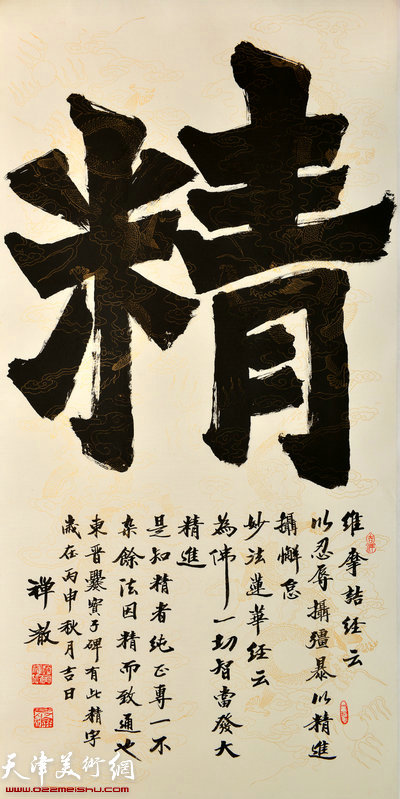 精
維摩詰經云
以忍辱攝彊暴以精進
攝懈怠
妙法蓮華經云
為佛一切智當發大
精進
是知精者純正專一不
杂餘法因精而致通也
東晋爨寳子碑有此精字
歲在丙申秋月吉日
禅散
天津美術網
www.022meishu.com